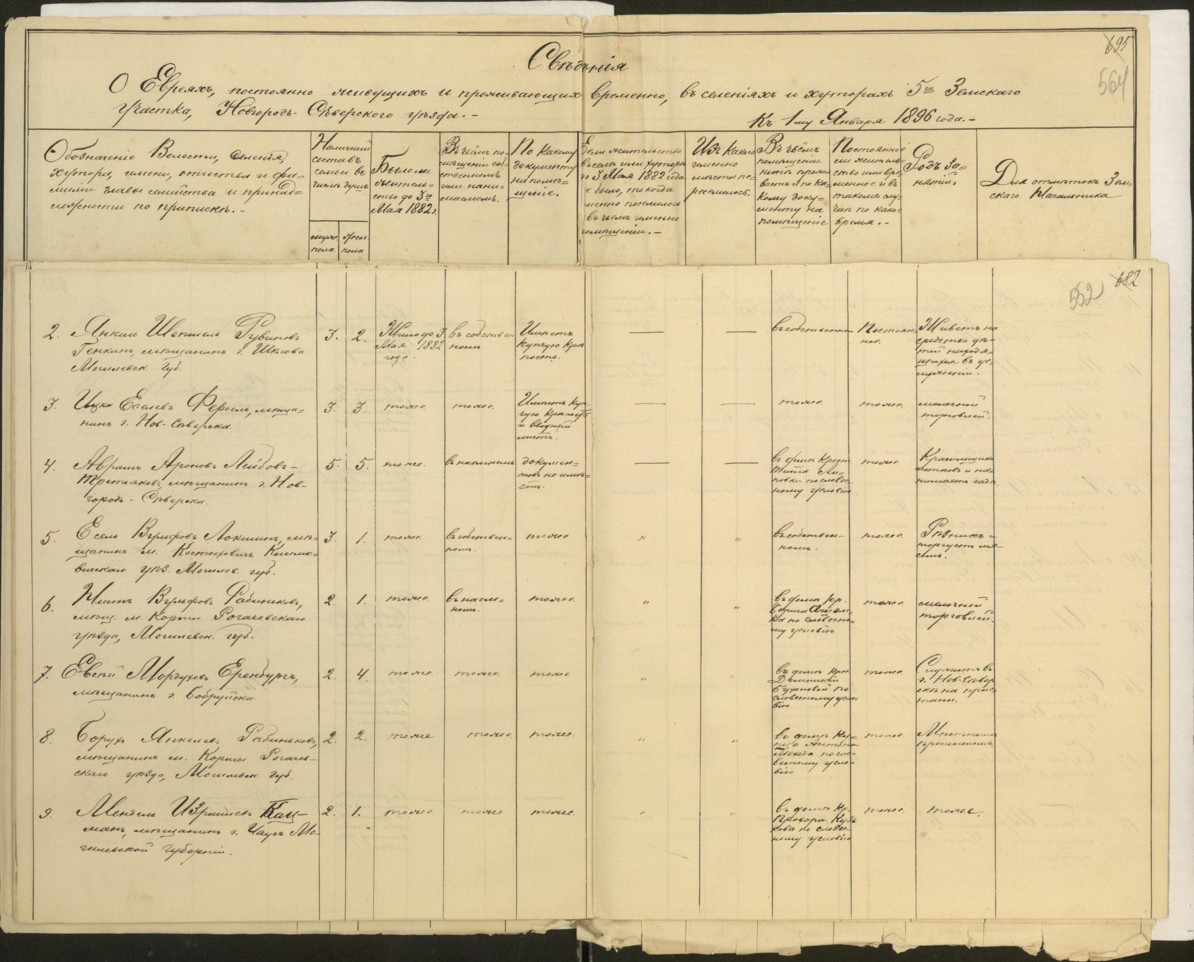 695
564
Свѣдѣнія
О Евреяхъ, постоянно живущихъ и проживающихъ временно, въ селеніяхъ и хуторахъ 5го Земскаго
Участка, Новгородъ-Сѣверского уѣзда.-
Къ 1му Января 1896 года.-
Обозначеніе Волости, селенія,
хутора, имени, отчества и фа-
миліи главы семейства и принад-
лежности по припискѣ.-
Наличный
составъ
семьи
душъ
мужс.
пола.
женс.
пола.
Было ли
житель-
ство до 3го
Мая 1882 г.
Въ чьемъ по-
мѣщеніи соб-
ственномъ
или нани-
маемомъ.
По какому
документу
на помѣ-
щеніе.
мѣстечкѣ
въ семъ или хуторѣ
до 3 Мая 1882 года
не было, то когда
именно поселился
въ чьемъ именно
помѣщеніи.-
Изъ какого
именно
мѣста пе-
реселился.
Въ чьемъ
помѣщеніи
нынѣ прожи-
ваетъ и по ка-
кому доку-
менту на
помѣщеніе
Постоянное
ли житель-
ство или вре-
менное и въ
такомъ слу-
чаѣ по како-
время.-
Родъ за-
нятій.
Для отмѣтокъ Зем-
скаго Начальника
552
682
2. Янкель Шепшель Рувиновъ
Генкинъ, мѣщанинъ г. Шклова
Могилевск. Губ.
3. 2.
Жилъ до 3
Мая 1882
года.
въ собствен-
номъ.
Имѣетъ
купчую крѣ-
пость.
въ собствен
Постоян
ное.
Живетъ на
средства дѣ-
тей находя-
щихся въ
3. Ицко Еселевъ Фогель, мѣща-
нинъ г. Нов-Сѣверска.
3. 3. тоже. тоже.
Имѣетъ куп-
чую крѣпость
и вводный
листъ.
тоже. тоже.
мелочной
торговлей.
4. Абрамъ Ароновъ Лейбовъ-
Третьяковъ, мѣщанинъ г. Нов-
городъ-Сѣверска.
5. 5. тоже. въ наемномъ
докумен-
товъ не имѣ-
етъ.
въ домѣ крест
по словес-
ному условію
тоже
5. Есель Вульфовъ Локшинъ, мѣ-
щанинъ м. Костюковичъ Климо-
вичскаго уѣз. Могилев. губ.
3. 1. тоже. въ собствен-
номъ.
тоже
въ собствен-
номъ.
тоже.
Рѣзникъ и
торгуетъ мя-
сомъ.
6. Вульфовъ Рабиновъ,
мѣщ. м. Кормы Рогачевскаго
уѣзда, Могилевск. Губ.
2. 1. тоже. въ наем-
номъ.
тоже.
въ домѣ кр.
Бориса
ка по словесно-
му условію
тоже.
мелочной
торговлей.
7. Евсей Мордуховъ Еренбургъ,
мѣщанинъ г. Бобруйска.
2. 4. тоже. тоже. тоже
въ домѣ кр.
по
словесному усло-
вію
тоже.
Служитъ въ
г. Нов-Сѣвер
скѣ на при-
стани.
8. Борухъ Янкелевъ Рабиновъ,
мѣщанинъ м. Кормы Рогачев-
скаго уѣзда, Могилевск. Губ.
2. 2. тоже тоже. тоже.
въ домѣ
по сло-
весному усло-
вію
тоже.
9. Мендель Израйлевъ Кац-
манъ, мѣщанинъ г. Чаусъ Мо-
гилевской губерніи.
2. 1. тоже тоже тоже.
въ домѣ кр.
Прохора
по словес-
ному условію
тоже. тоже.